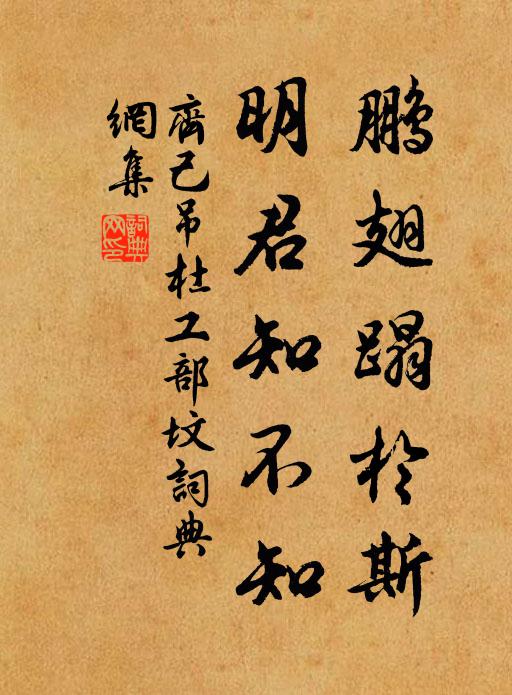 鹏翅蹋於斯
明君知不知
齊己吊杜工部坟詞典
網集
詞典网印